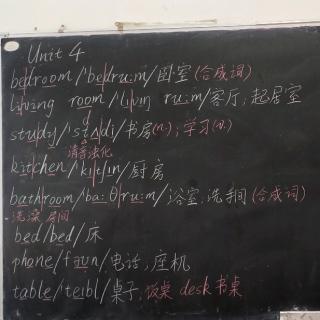 Unit 4
bedroom/'bedru:m/卧室(合成词)
living room/'lɪvɪŋ ru:m/客厅,起居室
d
study/'stʌdi/书房(n.);学习(v.)
清音浊化
kitchen/'kɪtʃɪn/厨房
bathroom/ba:θru:m/浴室,洗手间(合成词)
洗澡 房间
bed/bed/床
phone/fəʊn/电话,座机
table/'teɪbl/桌子,饭桌 desk 书桌